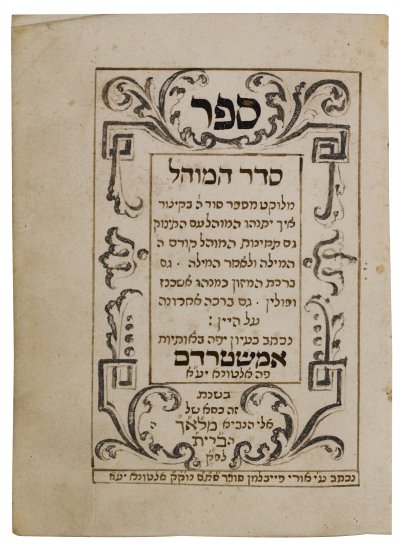 ספר
סדר המוהל
מלוקט מספר סוד ה׳ בקיצור
איך יתנהג המוהל עם התינוק
גם תפילות המוהל קודם ה
המילה ולאחר המילה . גם
ברכת המזון כמנהג אשכנז
ופולין . גם ברכה אחרונה
על היין :
נכתב בעיון יפה באותיות
אמשטרדם
פה אלטונא יע״א
בשנת
זה כסא של
אליהו הנביא מלאך ה
הברית
לפ״ק
נכתב ע״י אורי פייבלמן סופר סת״ם מק״ק אלטונא יע״א